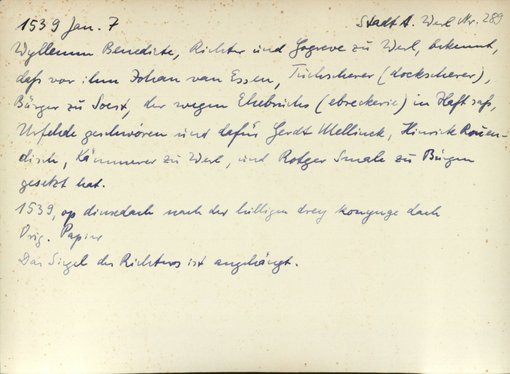 1539 Jan. 7 Stadt A. Werl Nr. 289
Wyllemm Benedicte, Richter und Gogreve zu Werl, bekennt,
daß vor ihm Johan van Essen, Tuchscherer (dockscherer),
Bürger zu Soest, der wegen Ehebruchs (ebreckerie) in Haft saß,
Urfehde geschworen und dafür Gerdt Mellinck, Hinrick Rouen-
disch, Kämmerer zu Werl, und Rotger Smale zu Bürgen
gesetzt hat.
1539, op dinsedach nach der hilligen drey konynge dach
Orig. Papier
Das Siegel des Richters ist angehängt.